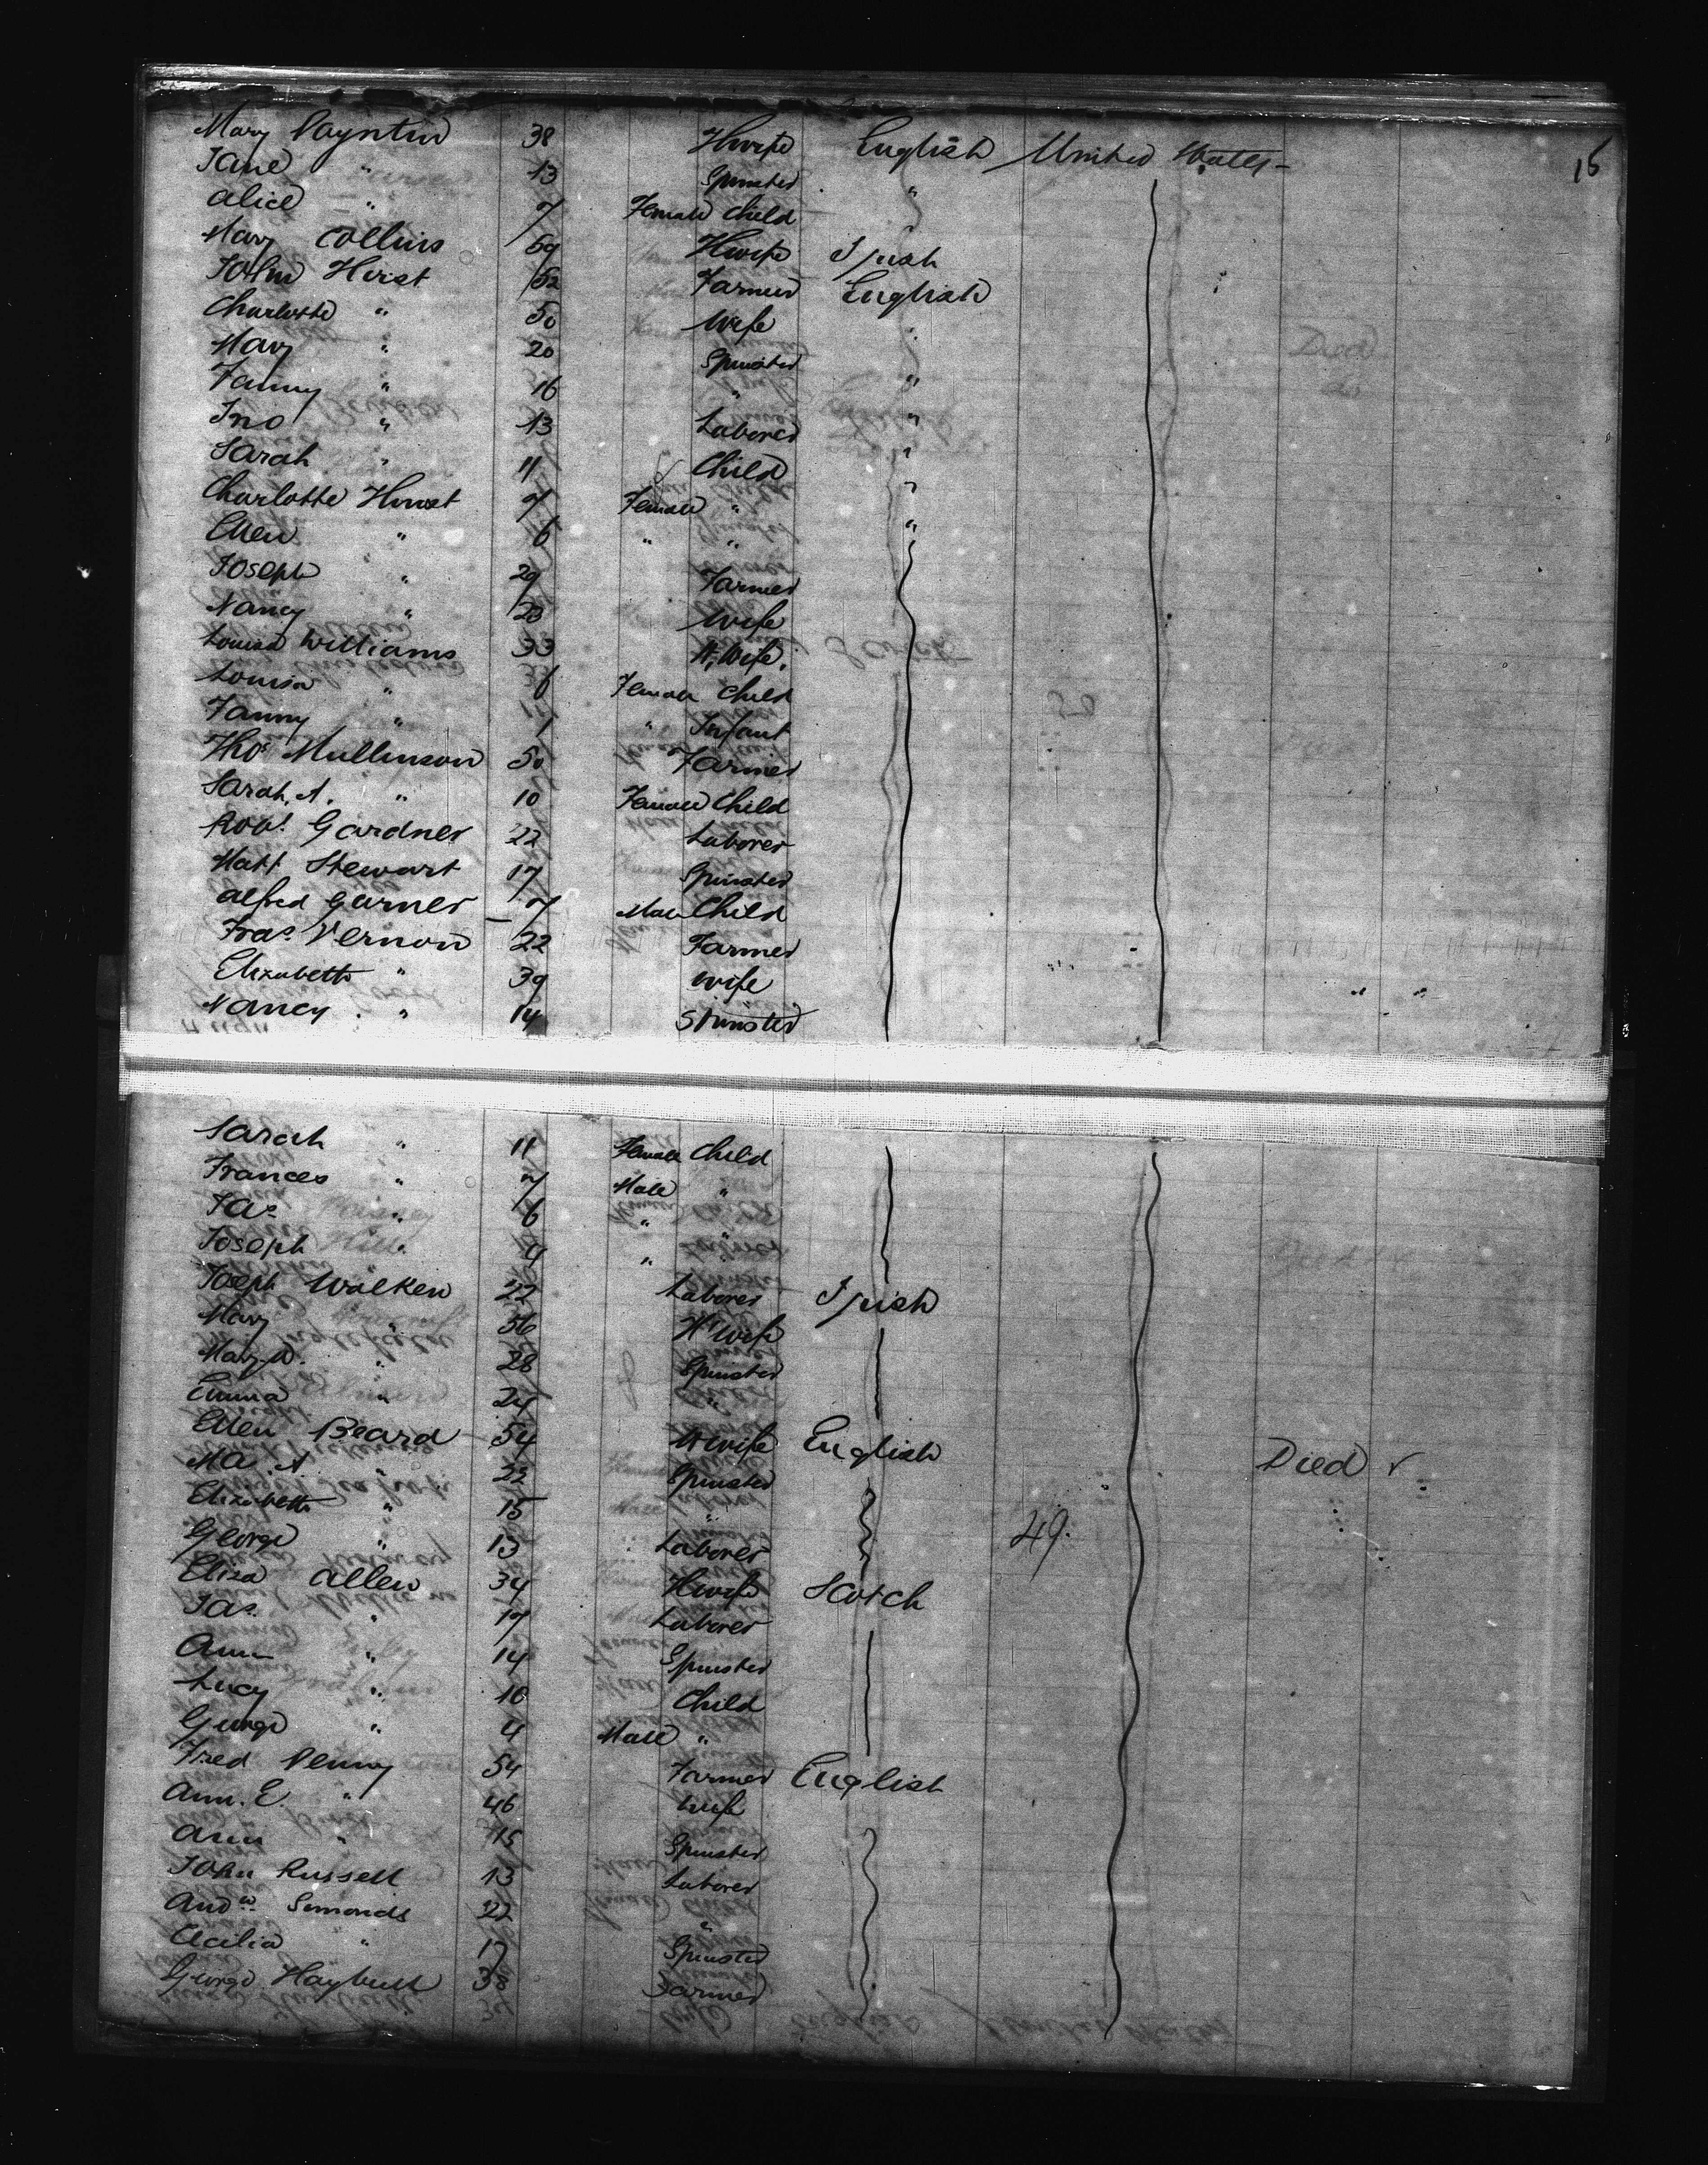 15
Mary Payntin 38 Hwife English United States
Jane " 13 Spinster "
Alice " 7 Female Child
Mary Collins 59 Hwife Irish
John Hirst 52 Farmer English
Charlotte " 50 Wife
Mary " 20 Spinster
Fanny " 16 " "
Jno " 13 Laborer "
Sarah " 11 Child "
Charlotte Hirst 7 Female " "
Ellen " 6 " " "
Joseph " 29 Farmer
Nancy " 23 Wife
Louisa Williams 33 H. Wife.
Louisa " 6 Female Child
Fanny " 1 " Infant
Thos Mullinson 50 Farmer
Sarah. A. " 10 Female Child
Robt. Gardner 22 Laborer
Matt Stewart 17 Spinster
Alfred Garner 7 Male Child
Fras. Vernon 22 Farmer
Elizabeth " 39 Wife
Nancy " 14 Spinster
Sarah " 11 Female Child
Frances " 7 Male "
Jas. " 6 " "
Joseph " 4 " "
Joseph Walken 22 Laborer Irish
Mary " 56 H wife
Mary W. " 28 Spinster
Emma " 24 "
Ellen Beard 54 H wife English Died
Ma. A. " 22 Spinster
Elizabeth " 15 "
George " 13 Laborer 49.
Eliza Allen 34 Hwife Scotch
Jas. " 17 Laborer
Ann " 14 Spinster
Lucy " 10 Child
George " 4 Male "
Fred Penny 54 Farmer English
Ann. E. " 46 Wife
Ann " 15 Spinster
John Russell 13 Laborer
Andw. Simonds 22 "
Cecilia " 17 Spinster
George Haybull 38 Farmer